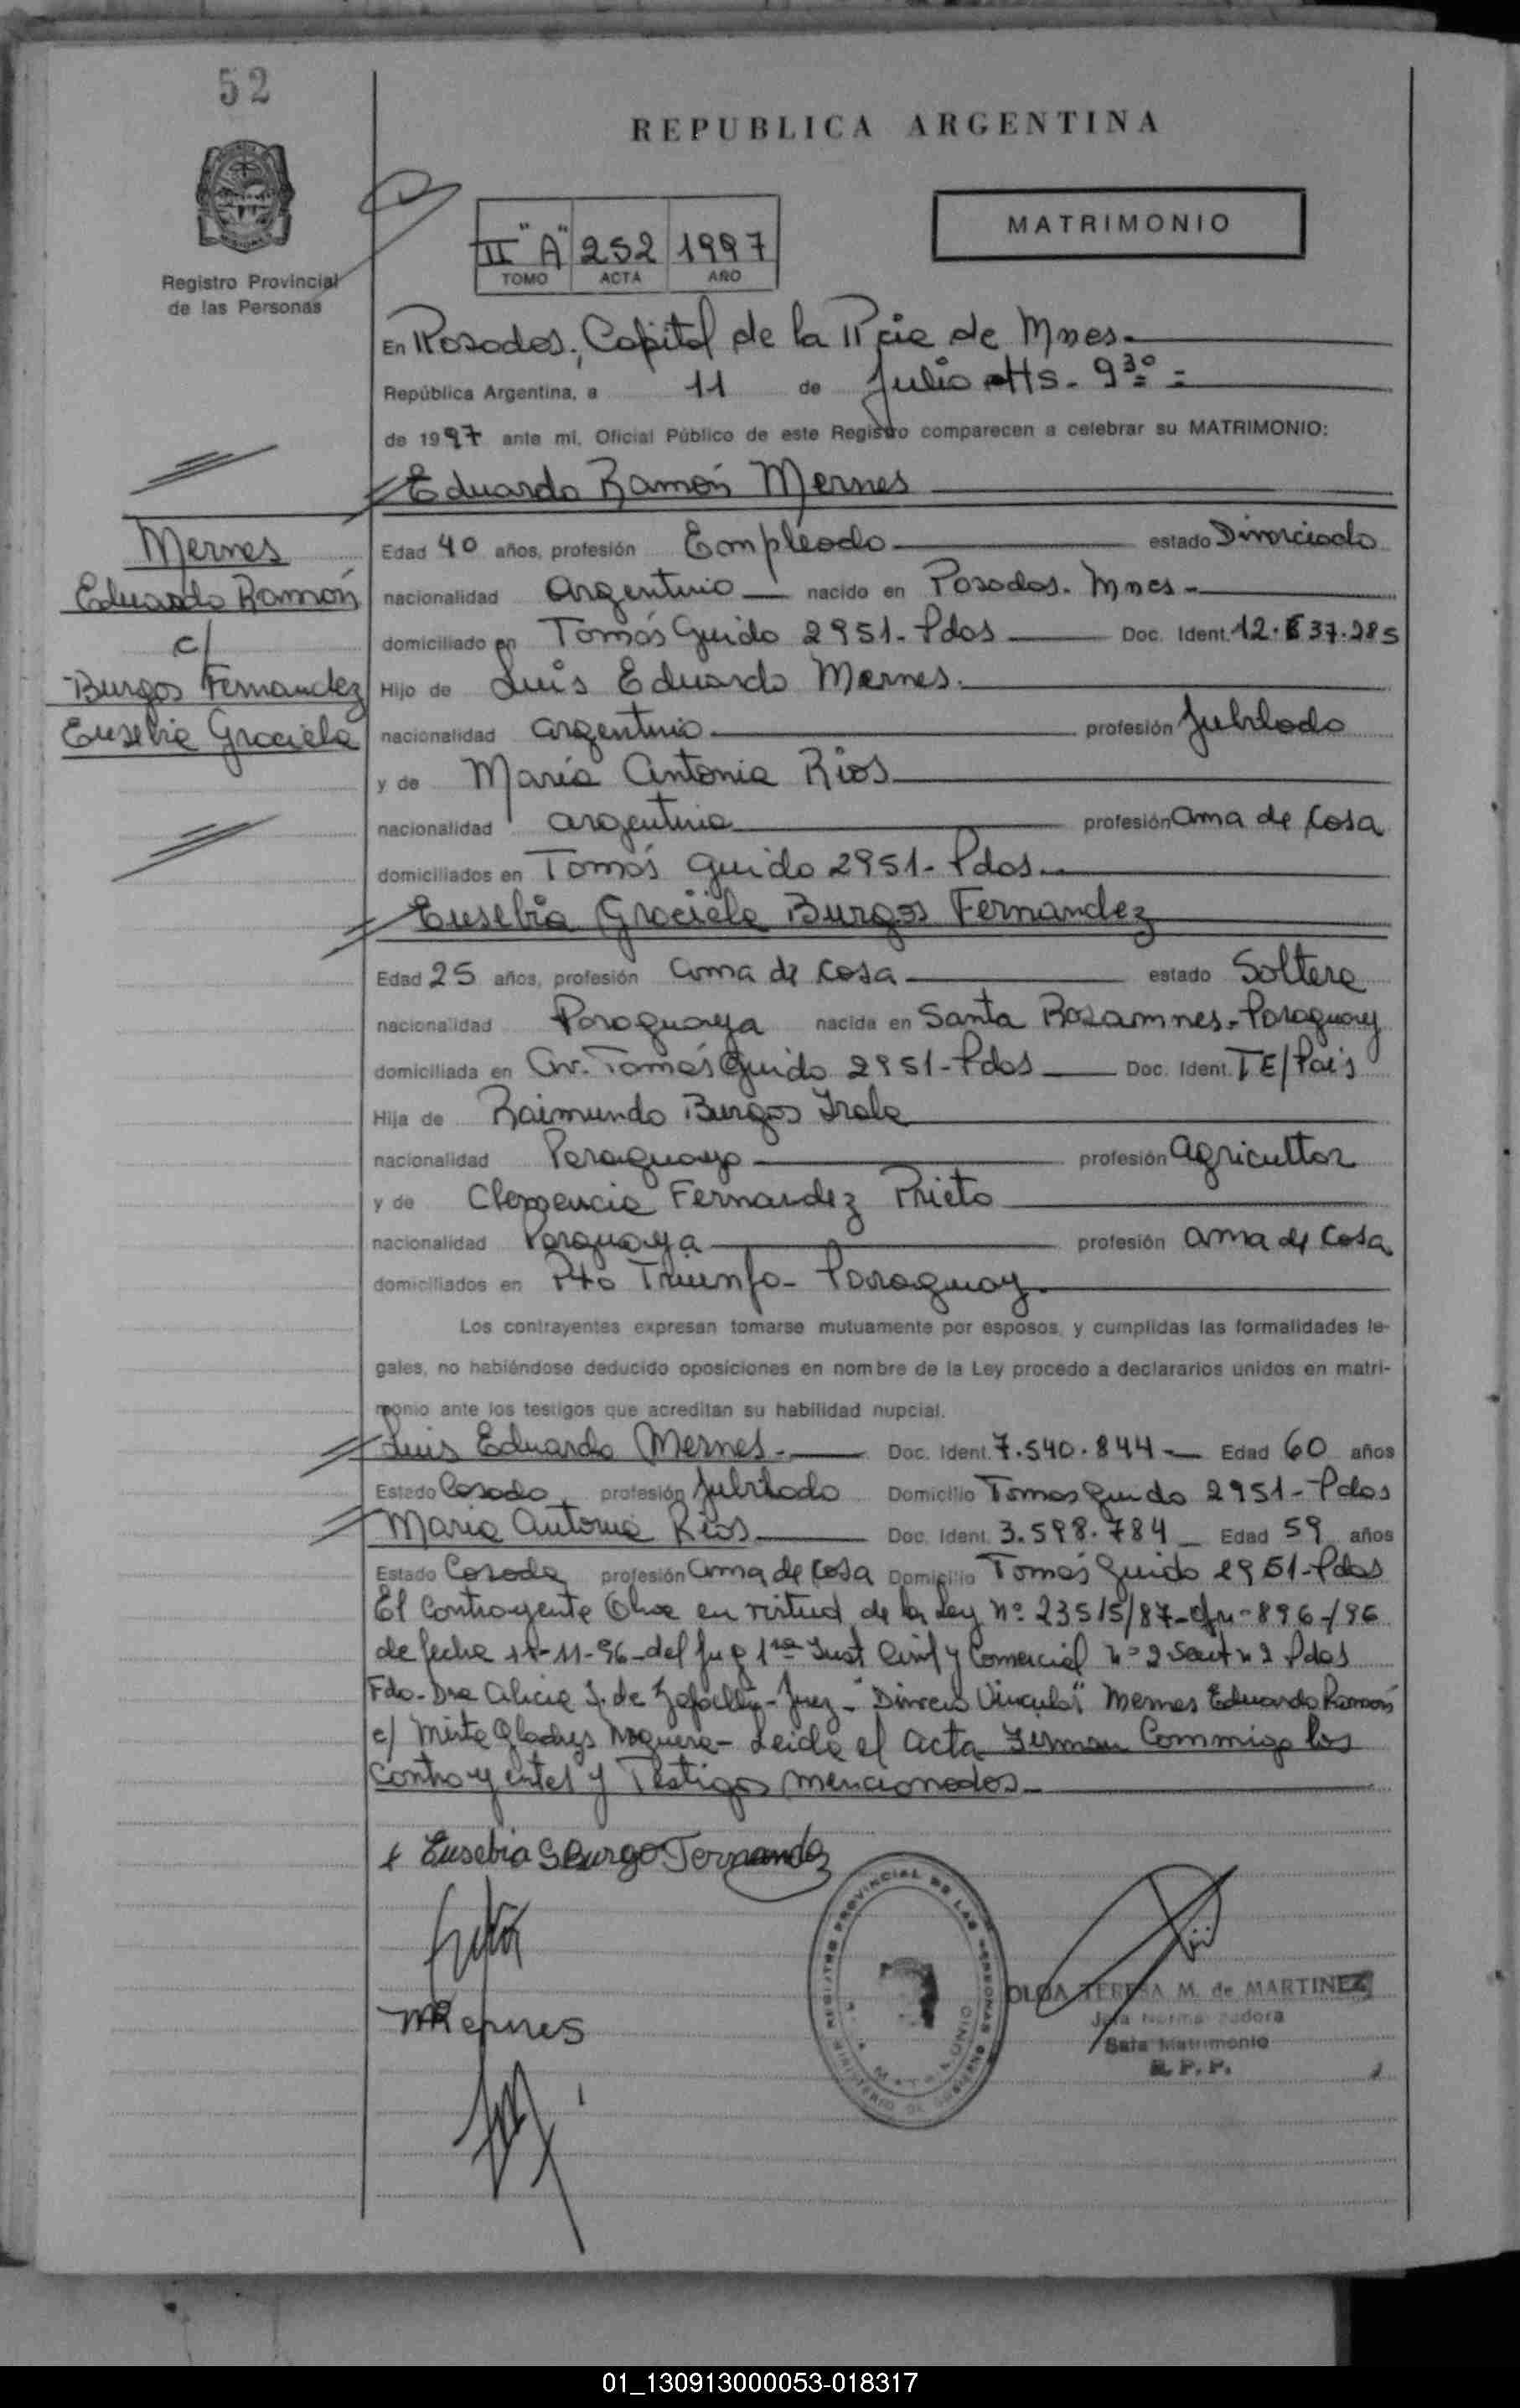 52
REPUBLICA ARGENTINA
Registro Provincial
de las Personas
II "A" 252 1997
TOMO ACTA AÑO
MATRIMONIO
En Posadas, Capital de la Pcia de Mnes.
República Argentina, a 11 de Julio Hs. 9 30
de 1997 ante mí, Oficial Público de este Registro comparecen a celebrar su MATRIMONIO:
Eduardo Ramón Mernes
Mernes
Eduardo Ramón
c/
Burgos Fernandez
Eusebia Graciela
Edad 40 años, profesión Empleado estado Divorciado
nacionalidad argentino nacido en Posadas. Mnes
domiciliado en Tomás Guido 2951-Pdas Doc. Ident. 12.637.285
Hijo de Luis Eduardo Mernes.
nacionalidad argentino profesión Jubilado
y de María Antonia Rios
nacionalidad argentina profesión ama de casa
domiciliados en Tomás Guido 2951-Pdas.
Eusebia Graciela Burgos Fernandez
Edad 25 años, profesión ama de casa estado Soltera
nacionalidad Paraguaya nacida en Santa Rosa mnes-Paraguay
domiciliada en Av. Tomás Guido 2951-Pdas Doc. Ident. TE/País
Hija de Raimundo Burgos Irala
nacionalidad Paraguayo profesión Agricultor
y de Clemencia Fernandez Prieto
nacionalidad Parguaya profesión ama de casa
domiciliados en Pto Triunfo- Paraguay.
Los contrayentes expresan tomarse mutuamente por esposos, y cumplidas las formalidades le-
gales, no habiéndose deducido oposiciones en nombre de la Ley procedo a declararlos unidos en matri-
monio ante los testigos que acreditan su habilidad nupcial.
Luis Eduardo Mernes. Doc. Ident. 7.540.844 Edad 60 años
Estado Casado profesión Jubilado Domicilio Tomas Guido 2951-Pdas
Maria Antonia Rios Doc. Ident. 3.598.784 Edad 59 años
Estado Casada profesión ama de casa Domicilio Tomás Guido 2951-Pdas
El Contrayente en virtud de la Ley nº 23515/87- 896-/96
de fecha -11-96-del Juz 1ra Inst Civil y Comercial nº 2 Pdas
Fdo-Dra Alicia de -Juez- "Divorcio Vincular" Mernes Eduardo Ramón
c/ Mirta Gladys Noguera- Leida el acta Firman Conmigo los
Contrayentes y Testigos mencionados
Eusebia G Burgo Fernandez
Mernes
REGISTRO PROVINCIAL DE LAS PERSONAS
MINISTERIO DE GOBIERNO
MATRIMONIO
OLGA TERESA M. de MARTINEZ
Jefa Normalizadora
Sala Matrimonio
R. P. P.
01_130913000053-018317